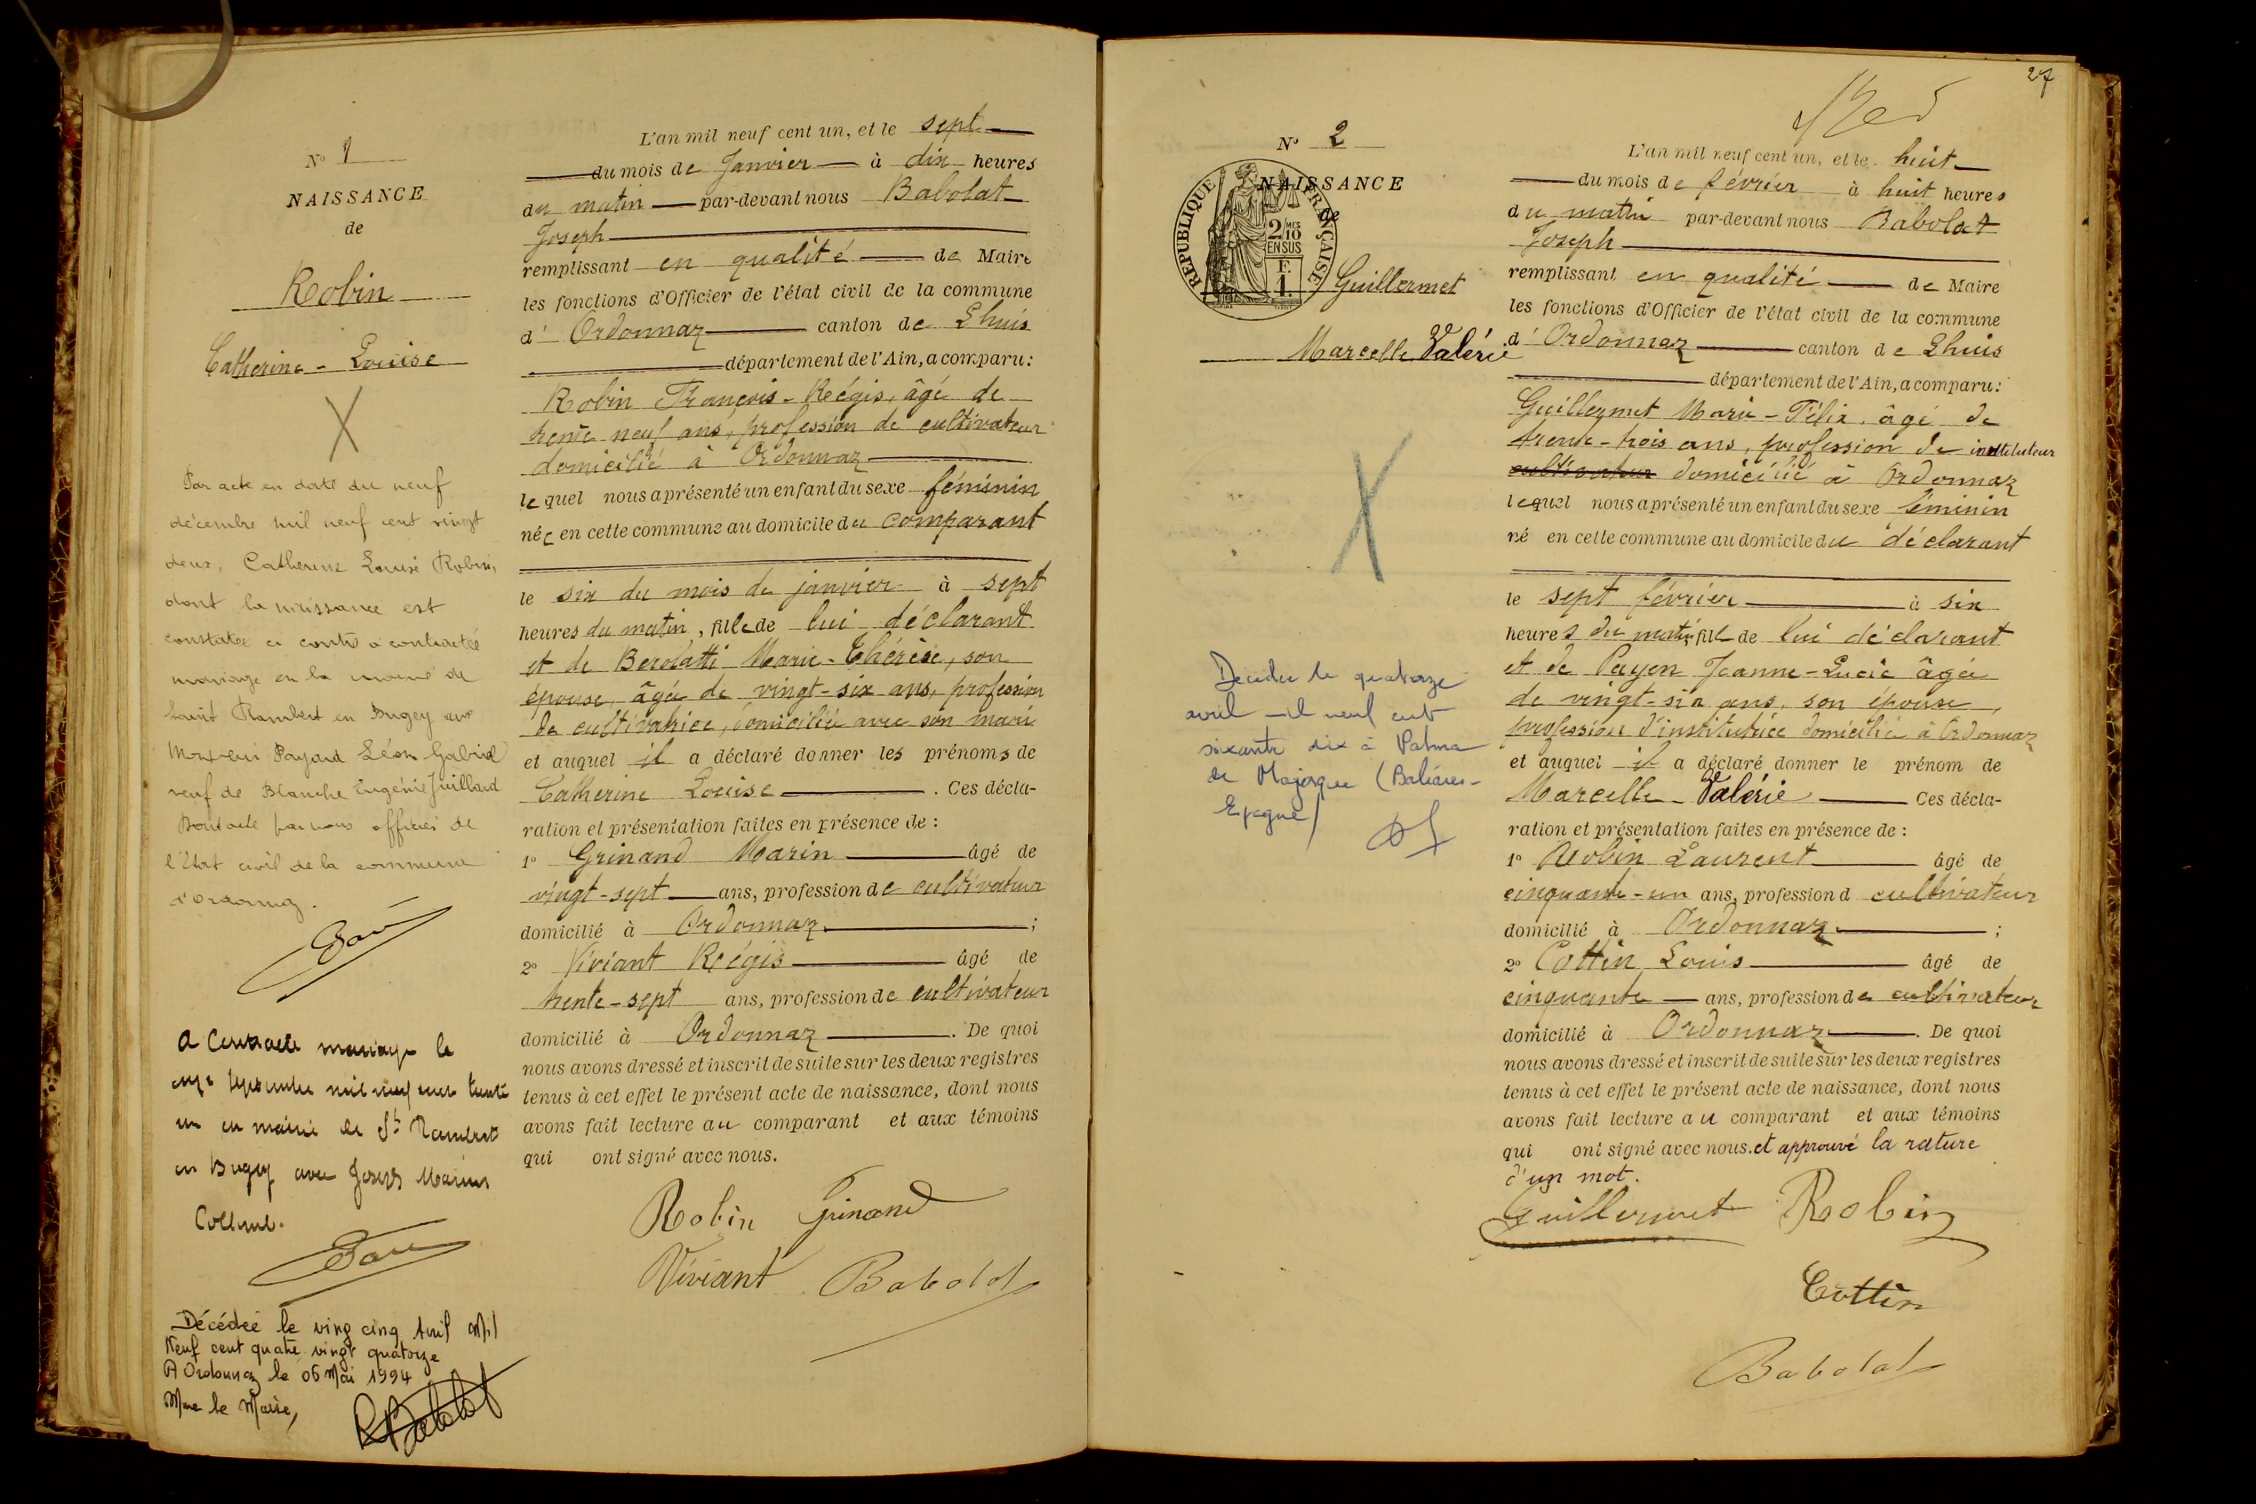 N° 1
NAISSANCE
de
Robin
Catherine-Louise
Par acte en date du neuf
décembre mil neuf cent vingt
deux, Catherine Louise Robin,
dont la naissance est
constatée ci contre a contracté
mariage en la mairie de
Saint Rambert en Bugey avec
Monsieur Payard Léon Gabriel
veuf de Blanche Eugénie Juillard
Dont acte par nous officier de
l'Etat civil de la commune
d'Ordonnaz.
a Contracté mariage le
onze septembre mil neuf cent trente
un en mairie de St Rambert
en Bugey avec Joseph Marius
Décédée le ving cinq Avril Mil
Neuf cent quatre vingt quatorze
A Ordonnaz le 06 Mai 1994
Mme le Maire,
L'an mil neuf cent un, et le sept
du mois de Janvier à dix heures
du matin par-devant nous Babolat
Joseph
remplissant en qualité de Maire
les fonctions d'Officier de l'état civil de la commune
d' Ordonnaz canton de Lhuis
département de l'Ain, a comparu:
Robin François-Régis, âgé de
trente neuf ans, profession de cultivateur
domicilié à Ordonnaz
lequel nous a présenté un enfant du sexe féminin
née en cette commune au domicile du comparant
le six du mois de janvier à sept
heures du matin, fille de lui déclarant
et de Berolatti Marie-Thérèse, son
épouse, âgée de vingt-six ans, profession
de cultivatrice, domiciliée avec son mari
et auquel il a déclaré donner les prénoms de
Catherine Louise . Ces décla-
ration et présentation faites en présence de :
1° Grinand Marin âgé de
vingt-sept ans, profession de cultivateur
domicilié à Ordonnaz ;
2° Viviant Régis âgé de
trente-sept ans, profession de cultivateur
domicilié à Ordonnaz . De quoi
nous avons dressé et inscrit de suite sur les deux registres
tenus à cet effet le présent acte de naissance, dont nous
avons fait lecture au comparant et aux témoins
qui ont signé avec nous.
Robin Grinand
Viviant Babolat
27
N° 2
NAISSANCE
de
REPUBLIQUE FRANÇAISE
2/10 MES
EN SUS
F.
1.
Guillermet
Marcelle Valérie
Décédée le quatorze
avril mil neuf cent
soixante dix à Palma
de Majorque (Baléares-
Espagne)
L'an mil neuf cent un, et le huit
du mois de février à huit heures
du matin par-devant nous Babolat
Joseph
remplissant en qualité de Maire
les fonctions d'Officier de l'état civil de la commune
d' Ordonnaz canton de Lhuis
département de l'Ain, a comparu:
Guillermet Marie-Félix, âgé de
trente-trois ans, profession de instituteur
cultivateur domicilié à Ordonnaz
lequel nous a présenté un enfant du sexe féminin
né en cette commune au domicile du déclarant
le sept février à six
heures du matin, fille de lui déclarant
et de Payen Jeanne-Lucie âgée
de vingt-six ans, son épouse,
profession d'institutrice domiciliée à Ordonnaz
et auquel il a déclaré donner le prénom de
Marcelle-Valérie Ces décla-
ration et présentation faites en présence de :
1° Robin Laurent âgé de
cinquante-un ans, profession d cultivateur
domicilié à Ordonnaz ;
2° Cottin Louis âgé de
cinquante ans, profession de cultivateur
domicilié à Ordonnaz . De quoi
nous avons dressé et inscrit de suite sur les deux registres
tenus à cet effet le présent acte de naissance, dont nous
avons fait lecture au comparant et aux témoins
qui ont signé avec nous. et approuvé la rature
d'un mot.
Guillermet Robin
Cottin
Babolat